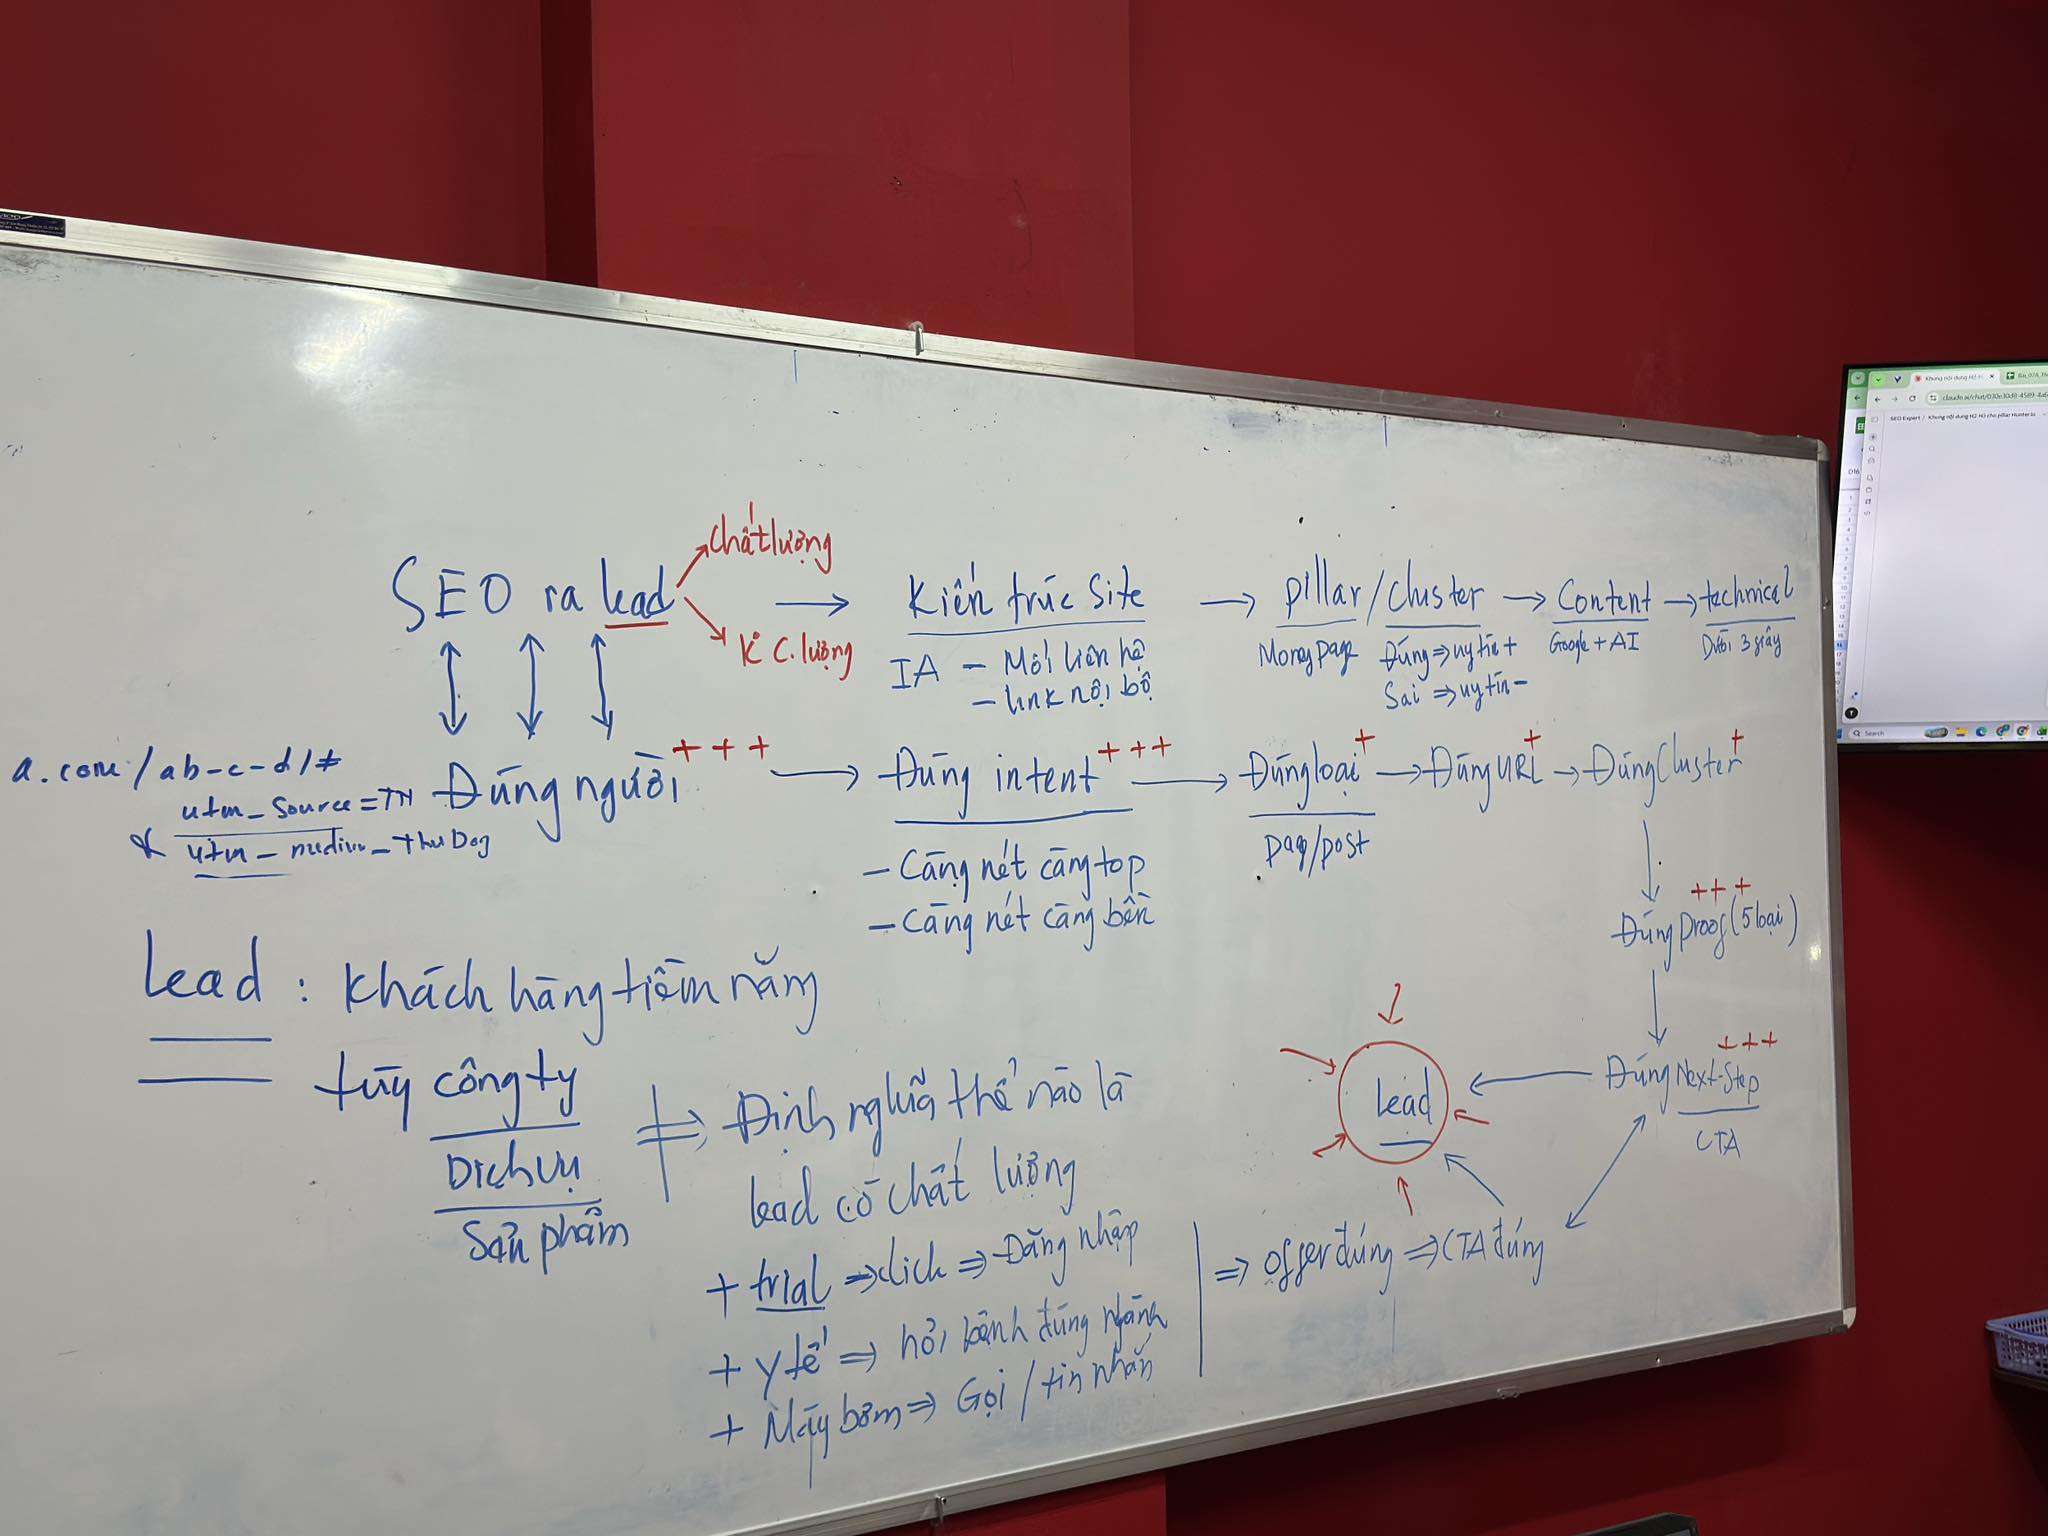 SEO ra lead
Chất lượng
K C.lượng
→ Kiến trúc Site → Pillar/Cluster → Content → technical
IA - Mối liên hệ
- link nội bộ
Money page
Đúng ⇒ uy tín +
Sai ⇒ uy tín -
Google + AI
Dưới 3 giây
a.com/ab-c-d/#
utm_source=TN
& utm_medium_ThuDog
Đúng người +++ → Đúng intent +++ → Đúng loại + → Đúng URL + → Đúng Cluster +
- Càng nét càng top
- Càng nét càng bền
pag/post
Đúng Proof (5 loại) +++
Đúng Next-Step +++
CTA
lead
lead : Khách hàng tiềm năng
tùy công ty
Dịch vụ
Sản phẩm
⇒ Định nghĩa thế nào là
lead có chất lượng
+ trial ⇒ click ⇒ Đăng nhập
+ y tế ⇒ hỏi bệnh đúng ngành
+ Máy bơm ⇒ Gọi / tin nhắn
⇒ offer đúng ⇒ CTA đúng
Search